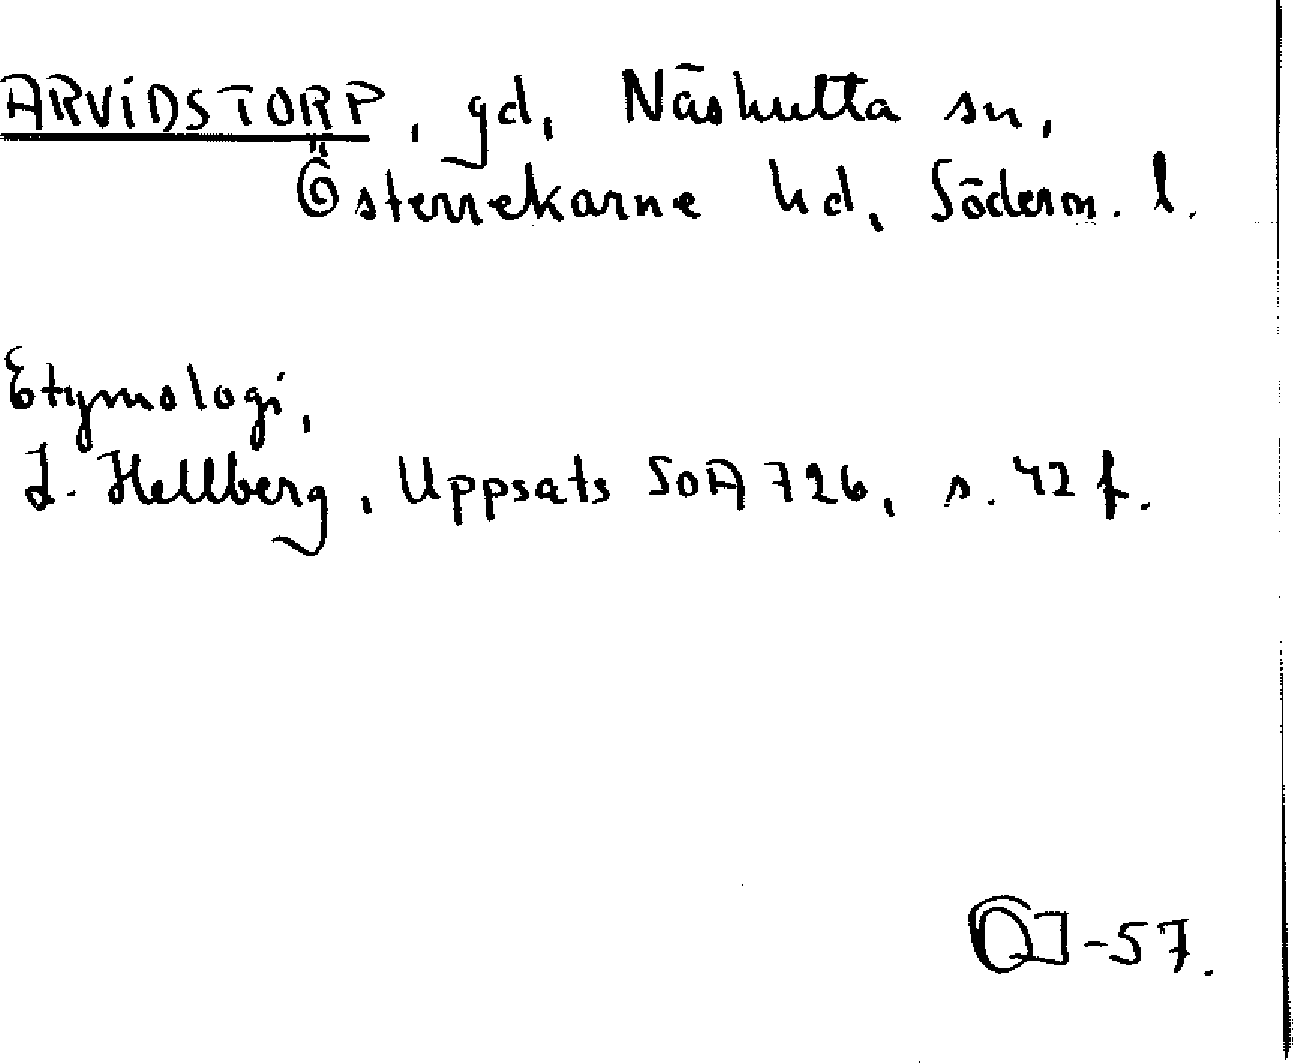 ARVIDSTORP, gd, Näshulta sn,
Österrekarne hd, Söderm. l.
Etymologi,
L. Hellberg, Uppsats SOA 726, s. 42 f.
-57.